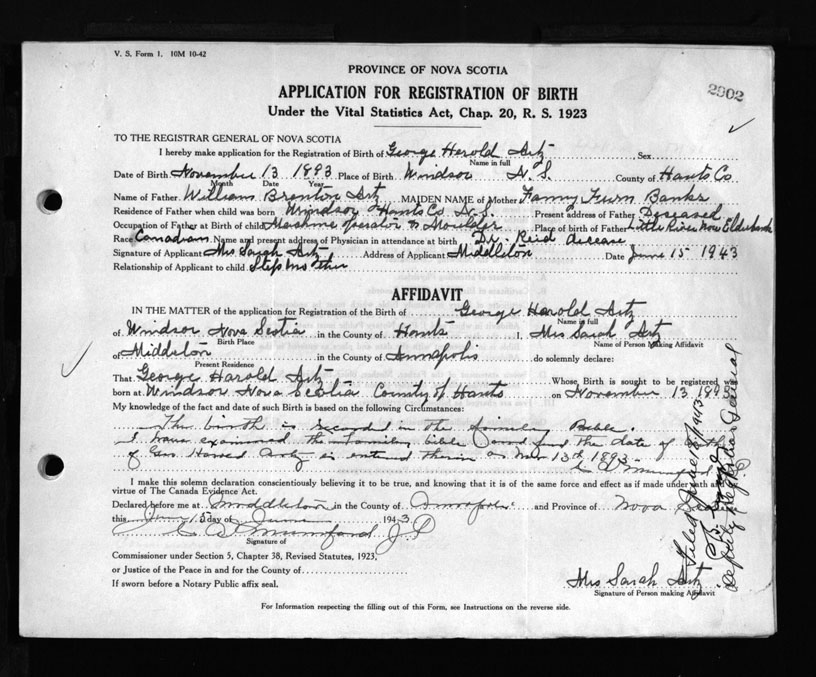 V. S. Form 1. 10M 10-42
PROVINCE OF NOVA SCOTIA
2902
APPLICATION FOR REGISTRATION OF BIRTH
Under the Vital Statistics Act, Chap. 20, R. S. 1923
TO THE REGISTRAR GENERAL OF NOVA SCOTIA
I hereby make application for the Registration of Birth of George Herold Artz, Sex
Name in full
Date of Birth November 13 1893 Place of Birth Windsor N.S. County of Hants Co
Month Date Year
Name of Father William Brenton Artz MAIDEN NAME of Mother Fanny Banks
Residence of Father when child was born Windsor Hants Co. N.S. Present address of Father Deseased
Occupation of Father at Birth of child Mershine operator & Moulder Place of birth of Father Little River Now Elderbank
Race Canadian Name and present address of Physician in attendance at birth Dr. Reid disease
Signature of Applicant Mrs Sarah Artz Address of Applicant Middleton Date June 15 1943
Relationship of Applicant to child Step Mother
AFFIDAVIT
IN THE MATTER of the application for Registration of the Birth of George Harold Artz
Name in full
of Windsor Nova Scotia in the County of Hants I, Mrs Sarah Artz
Birth Place Name of Person Making Affidavit
of Middleton in the County of Annapolis do solemnly declare:
Present Residence
That George Harold Artz Whose Birth is sought to be registered was
born at Windsor Nova Scotia County of Hants on November 13 1893
My knowledge of the fact and date of such Birth is based on the following Circumstances:
This birth is recorded in the family Bible.
I have examined the family bible and find the date of birth
of Geo. Harold Artz is entered therein as Nov 13th 1893.
Mumford J.P.
I make this solemn declaration conscientiously believing it to be true, and knowing that it is of the same force and effect as if made under oath and by
virtue of The Canada Evidence Act.
Declared before me at Middleton in the County of Annapolis and Province of Nova Scotia
this 15 day of June 1943
Mumford J P
Signature of
Commissioner under Section 5, Chapter 38, Revised Statutes, 1923,
or Justice of the Peace in and for the County of
If sworn before a Notary Public affix seal.
Mrs Sarah Artz
Signature of Person making Affidavit
For Information respecting the filling out of this Form, see Instructions on the reverse side.
Filed June 18 1943
Deputy Registrar General